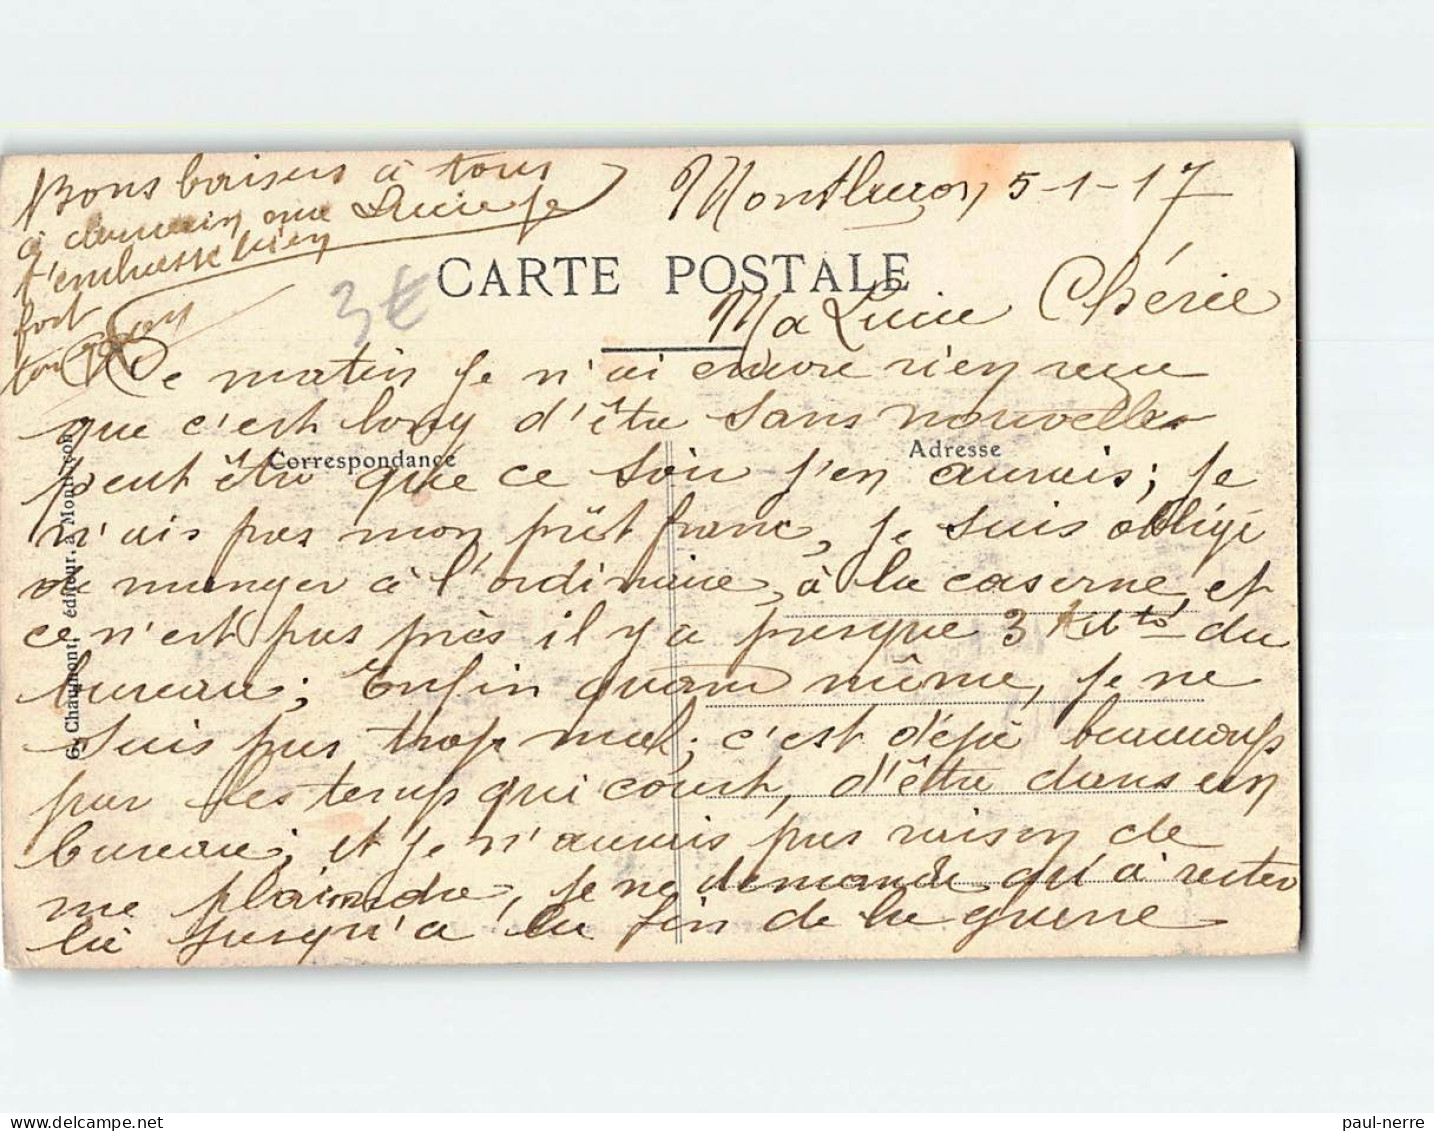 Montluçon 5-1-17
CARTE POSTALE
Ma Lucie Chérie
Ce matin je n'ai encore rien reçu
que c'est long d'être sans nouvelles
Correspondance
Adresse
peut être que ce soir j'en aurais; je
n'ais pas mon prêt franc, je suis obligé
de manger à l'ordinaire, à la caserne, et
ce n'est pas près il y a presque 3 du
bureau; Enfin quand même, je ne
suis pas trop mal; c'est déjà beaucoup
par les temps qui court, d'être dans un
bureau; et je n'aurais pas raison de
me plaindre, je ne demande qu'à rester
là jusqu'a la fin de la guerre
Bons baisers à tous
à demain ma Lucie je
t'embrasse bien
fort
ton
3€
G. Chaumont, éditeur, à Montluçon
paul-nerre